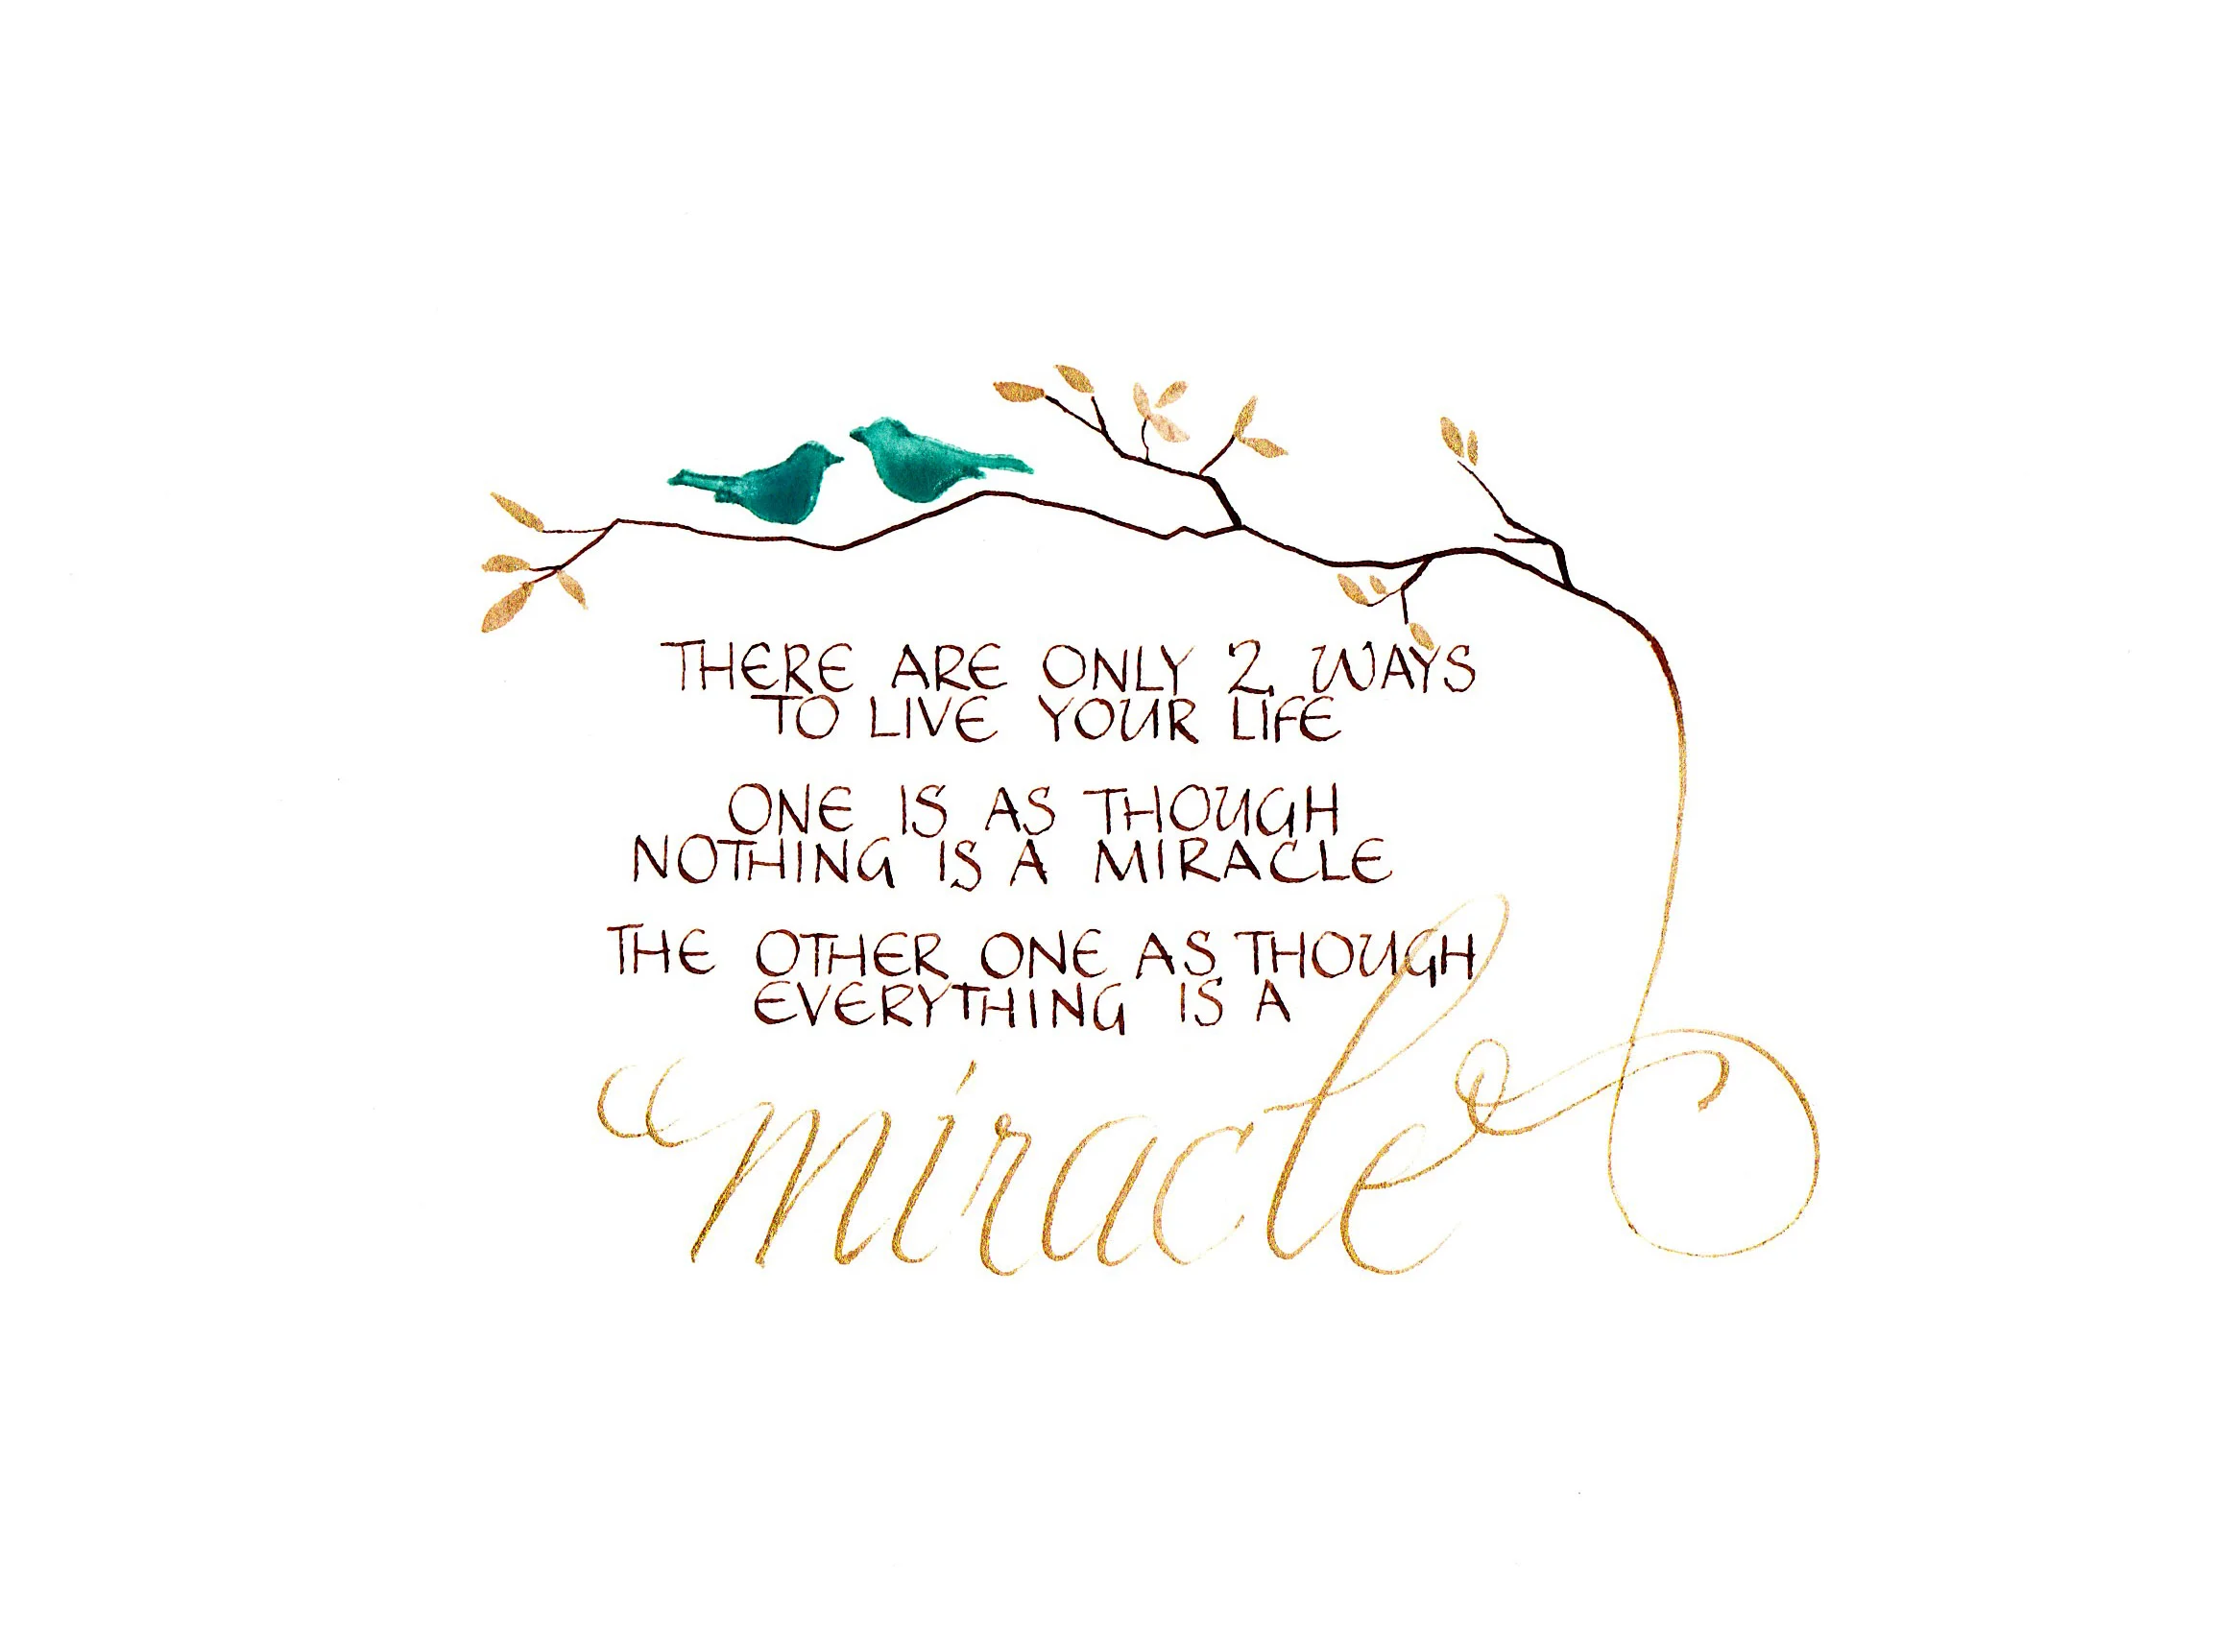 THERE ARE ONLY 2 WAYS
TO LIVE YOUR LIFE
ONE IS AS THOUGH
NOTHING IS A MIRACLE
THE OTHER ONE AS THOUGH
EVERYTHING IS A
miracle